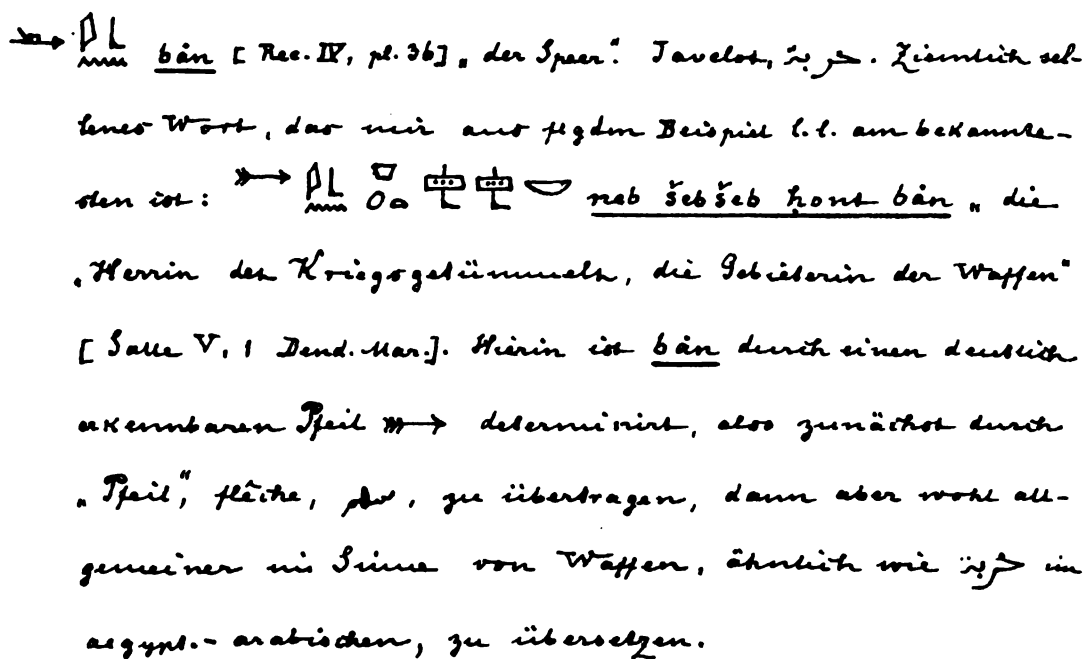 bȧn [Rec. IV, pl. 36] „der Speer“. Javelot, حربة. Ziemlich sel-
tenes Wort, das mir aus flgdm Beispiel l.l. am bekannte-
sten ist: neb šebšeb ḥont bȧn „die
„Herrin des Kriegsgetümmels, die Gebieterin der Waffen“
[Salle V, 1 Dend. Mar.]. Hierin ist bȧn durch einen deutlich
erkennbaren Pfeil determinirt, also zunächst durch
„Pfeil“, flêche, zu übertragen, dann aber wohl all-
gemeiner im Sinne von Waffen, ähnlich wie حربة im
aegypt.-arabischen, zu übersetzen.